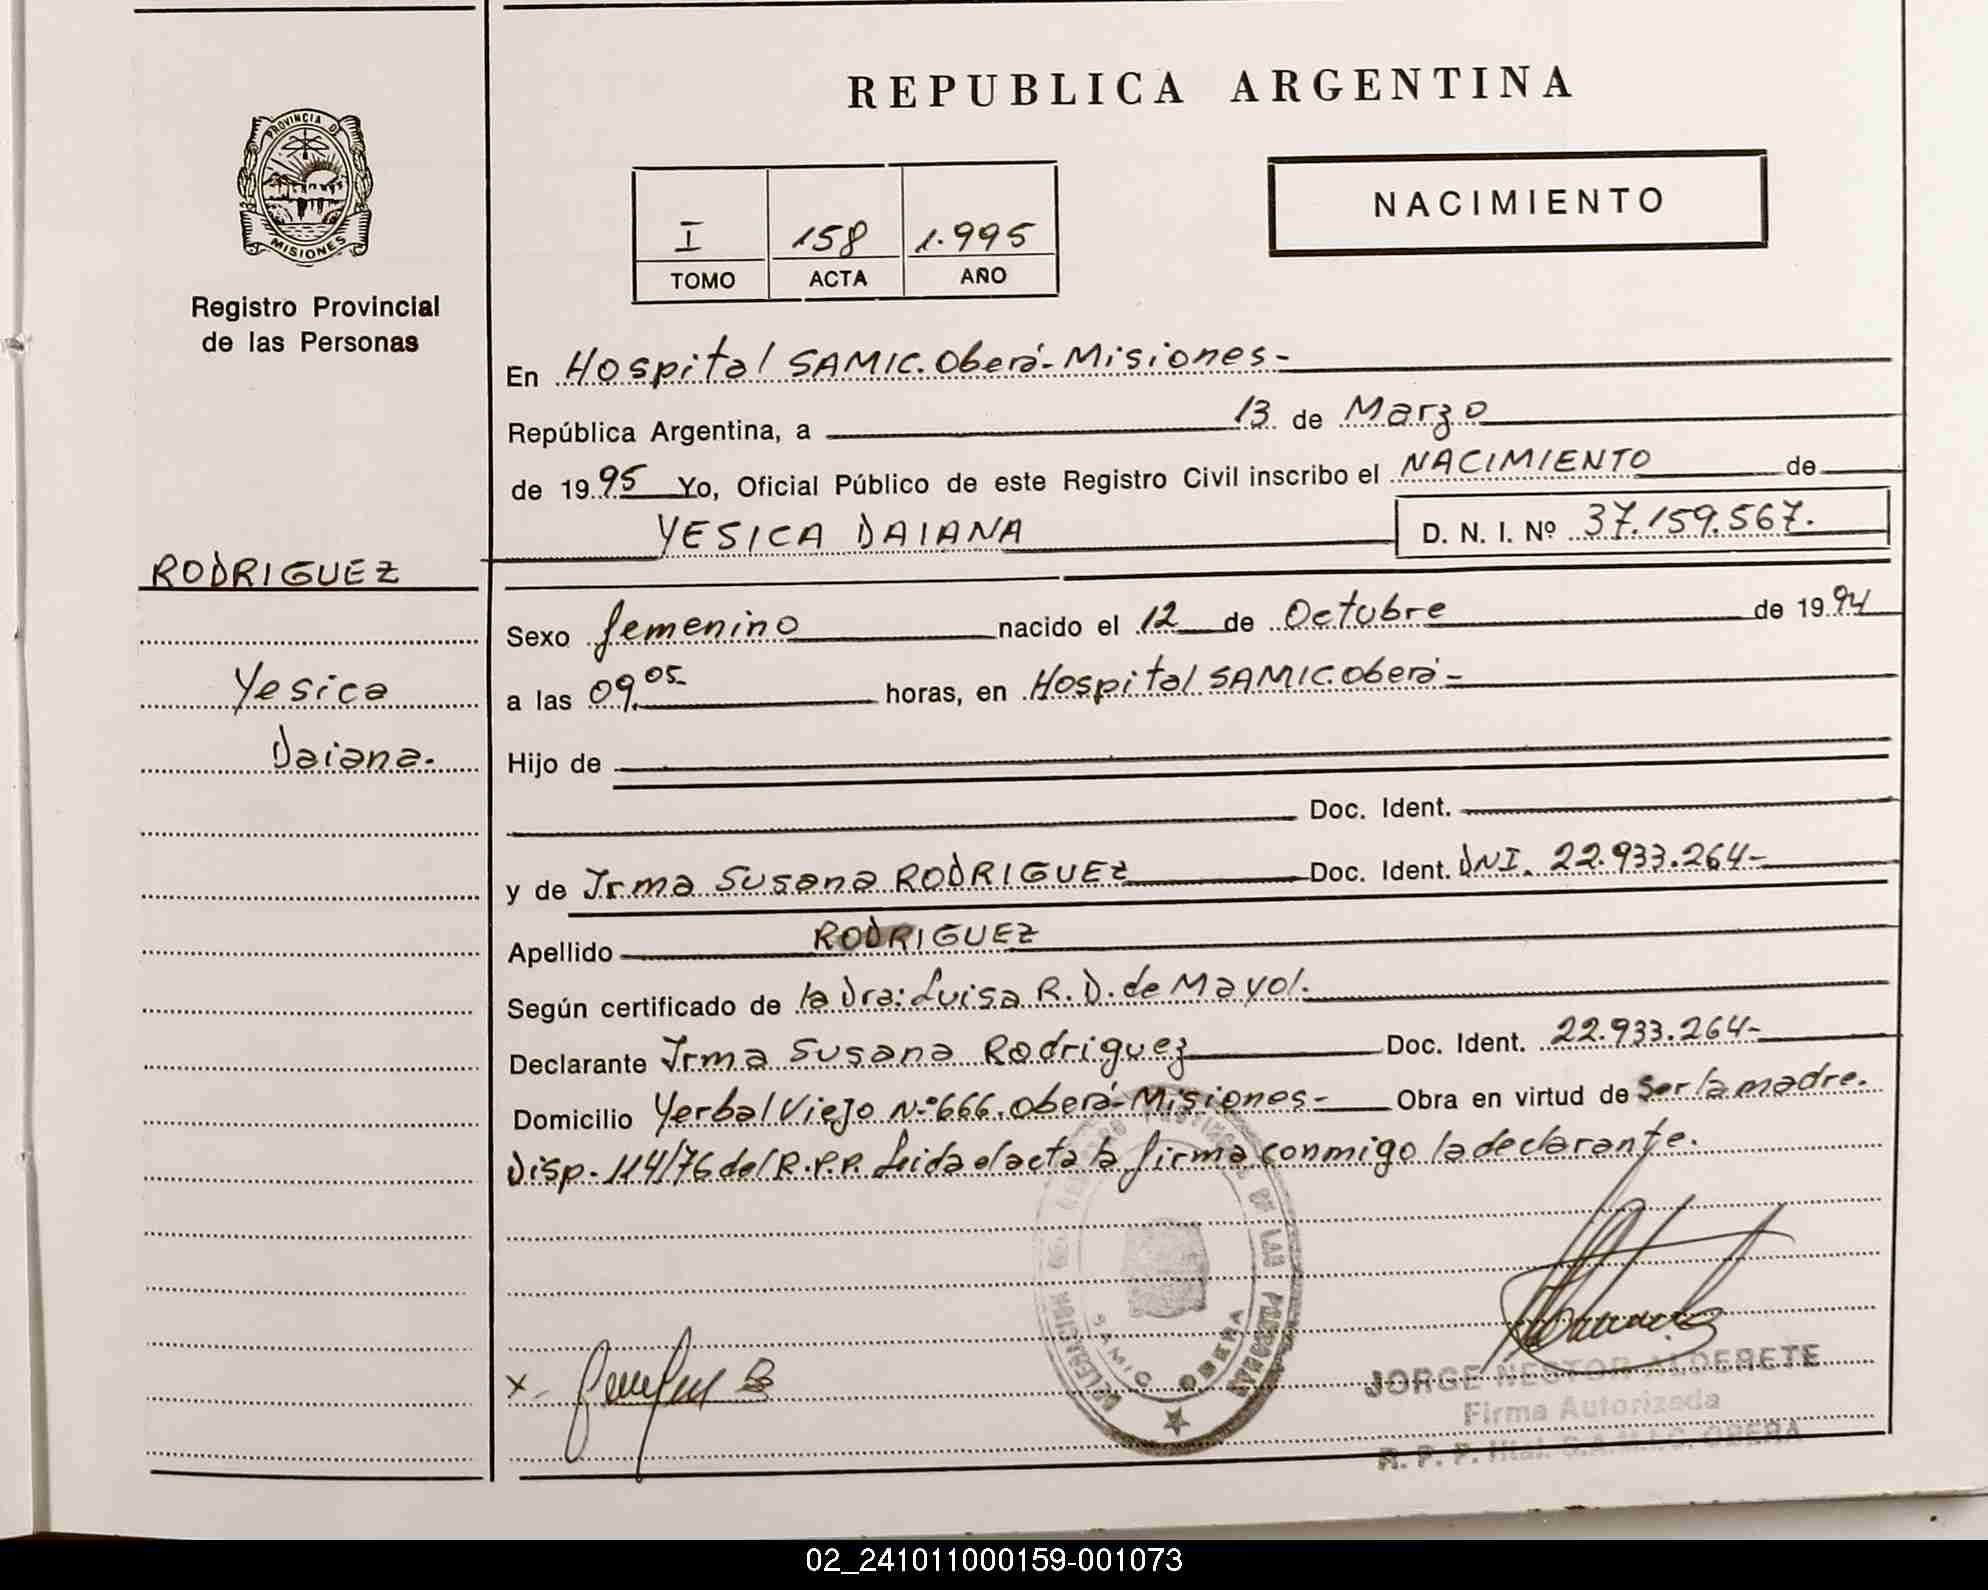 REPUBLICA ARGENTINA
PROVINCIA D
MISIONES
Registro Provincial
de las Personas
I 158 1.995
TOMO ACTA AÑO
NACIMIENTO
En Hospital SAMIC. Oberá-Misiones-
República Argentina, a 13 de Marzo
de 1995 Yo, Oficial Público de este Registro Civil inscribo el NACIMIENTO de
YESICA DAIANA D. N. I. Nº 37.159.567.
RODRIGUEZ
Yesica
Daiana.
Sexo femenino nacido el 12 de Octubre de 1994
a las 09.05- horas, en Hospital SAMIC. Oberá-
Hijo de
Doc. Ident.
y de Irma Susana RODRIGUEZ Doc. Ident. DNI. 22.933.264-
Apellido RODRIGUEZ
Según certificado de la Dra: Luisa R. D. de Mayol.
Declarante Irma Susana Rodriguez Doc. Ident. 22.933.264-
Domicilio Yerbal Viejo N:º 666. Oberá-Misiones- Obra en virtud de Ser la madre.
Disp- 114/76 del R.P.P. Leida el acta la firma conmigo la declarante.
OBERA
x-
JORGE NESTOR ALDERETE
Firma Autorizada
R. P. P. Htal. S.A.M.I.C. OBERA
02_241011000159-001073